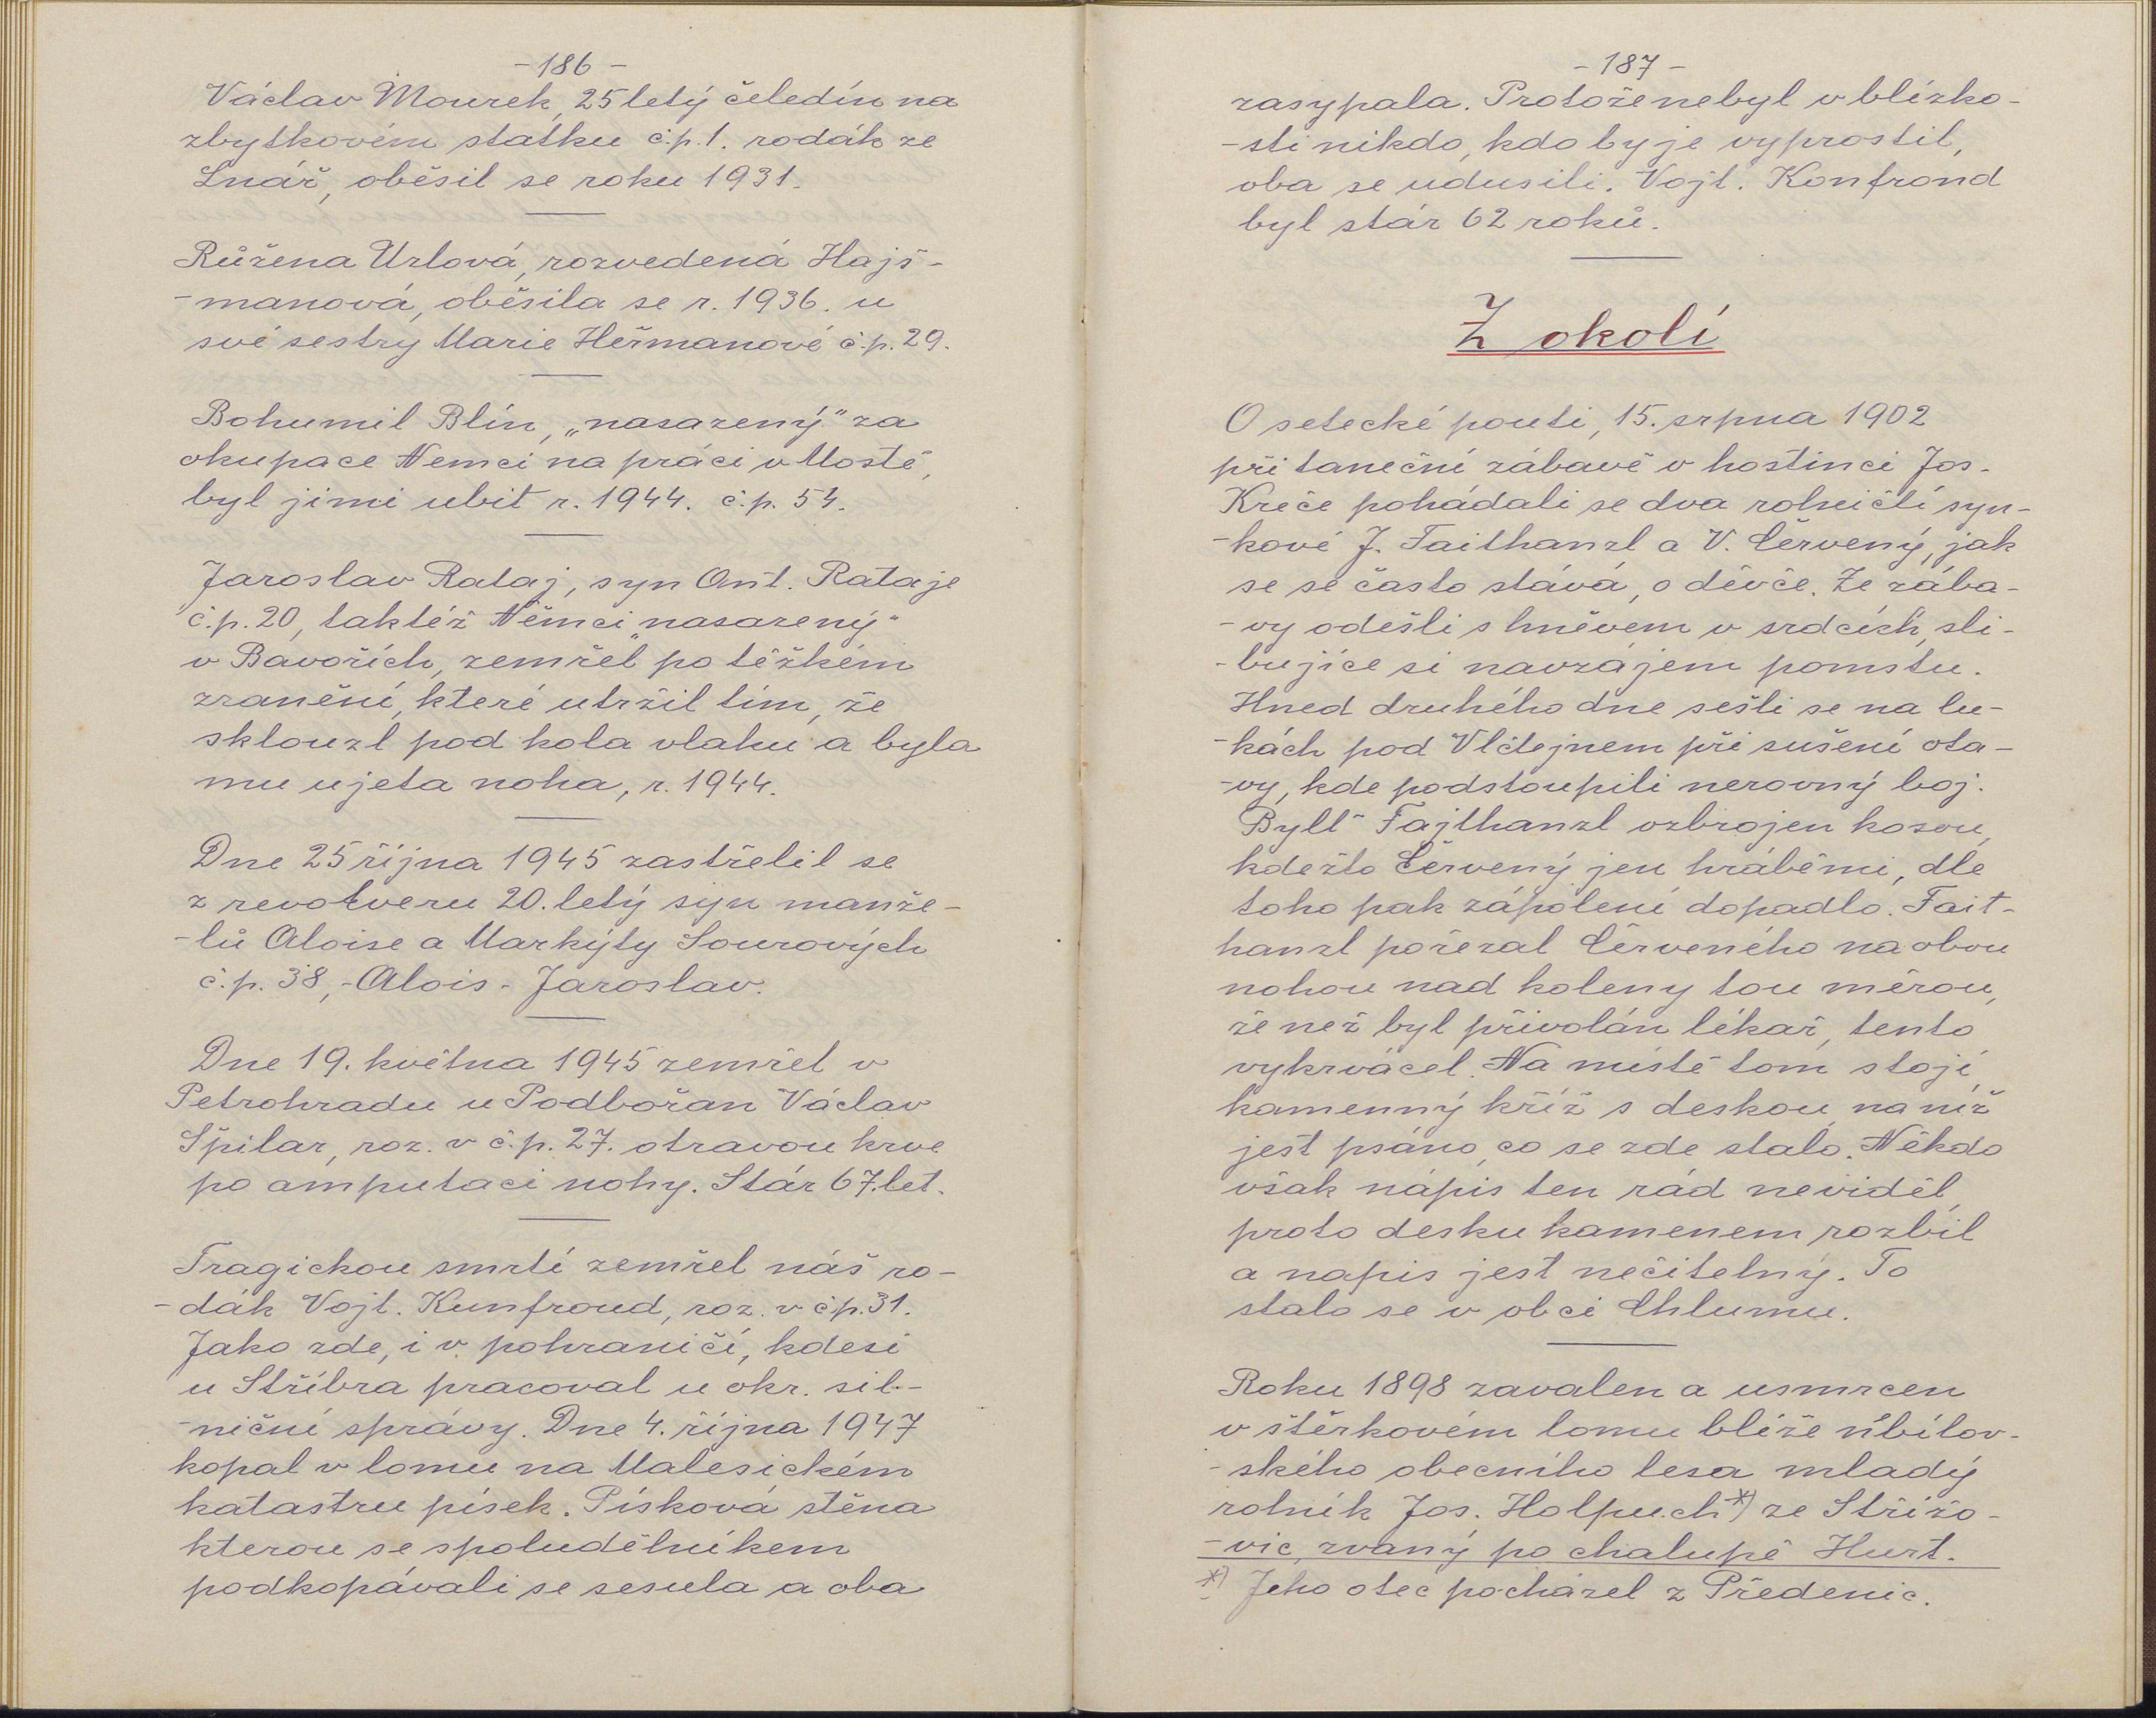 - 186 -
Václav Mourek, 25letý čeledín na
zbytkovém statku č.p.1. rodák ze
Lnář, oběsil se roku 1931.
Růžena Urlová, rozvedená Hajš-
-manová, oběsila se r. 1936. u
své sestry Marie Heřmanové č.p.29.
Bohumil Blín, „nasazený" za
okupace Nemci na práci v Mostě,
byl jimi ubit r. 1944. č.p. 54.
Jaroslav Rataj, syn Ant. Rataje
č.p.20, taktéž Němci „nasazený"
v Bavořích, zemřel po těžkém
zranění, které utržil tím, že
sklouzl pod kola vlaku a byla
mu ujeta noha, r. 1944.
Dne 25 října 1945 zastřelil se
z revolveru 20.letý syn manže-
-lů Aloise a Markýty Sourových
č.p. 38,-Alois-Jaroslav.
Dne 19. května 1945 zemřel v
Petrohradu u Podbořan Václav
Špilar, roz. v č.p.27. otravou krve
po amputaci nohy. Stár 67.let.
Tragickou smrtí zemřel náš ro-
-dák Vojt. Kunfroud, roz. v čp.31.
Jako zde, i v pohraničí, kdesi
u Stříbra pracoval u okr. sil-
-niční správy. Dne 4. října 1947
kopal v lomu na Malesickém
katastru písek. Písková stěna
kterou se spoludělníkem
podkopávali se sesula a oba
- 187 -
zasypala. Protože nebyl v blízko-
-sti nikdo, kdo by je vyprostil,
oba se udusili. Vojt. Konfrond
byl stár 62 roků.
Z okolí
O setecké pouti, 15. srpna 1902
při taneční zábavě v hostinci Jos.
Kreče pohádali se dva rolničtí syn-
-kové J. Faithanzl a V. Červený, jak
se se často stává, o děvče. Ze zába-
-vy odešli s hněvem v srdcích, sli-
-bujíce si navzájem pomstu.
Hned druhého dne sešli se na lu-
-kách pod Vlčtejnem při sušení ota-
-vy, kde podstoupili nerovný boj.
Bylť Fajthanzl ozbrojen kosou,
kdežto Červený jen hráběmi, dle
toho pak zápolení dopadlo. Fait-
hanzl pořezal Červeného na obou
nohou nad koleny tou měrou,
že než byl přivolán lékař, tento
vykrvácel. Na místě tom stojí
kamenný kříž s deskou, na níž
jest psáno, co se zde stalo. Někdo
však nápis ten rád neviděl,
proto desku kamenem rozbil
a napis jest nečitelný. To
stalo se v obci Chlumu.
Roku 1898 zavalen a usmrcen
v štěrkovém lomu blíže něbílov-
-ského obecního lesa mladý
rolník Jos. Holpuch*) ze Střížo-
-vic, zvaný po chalupě Hurt.
*) Jeho otec pocházel z Předenic.